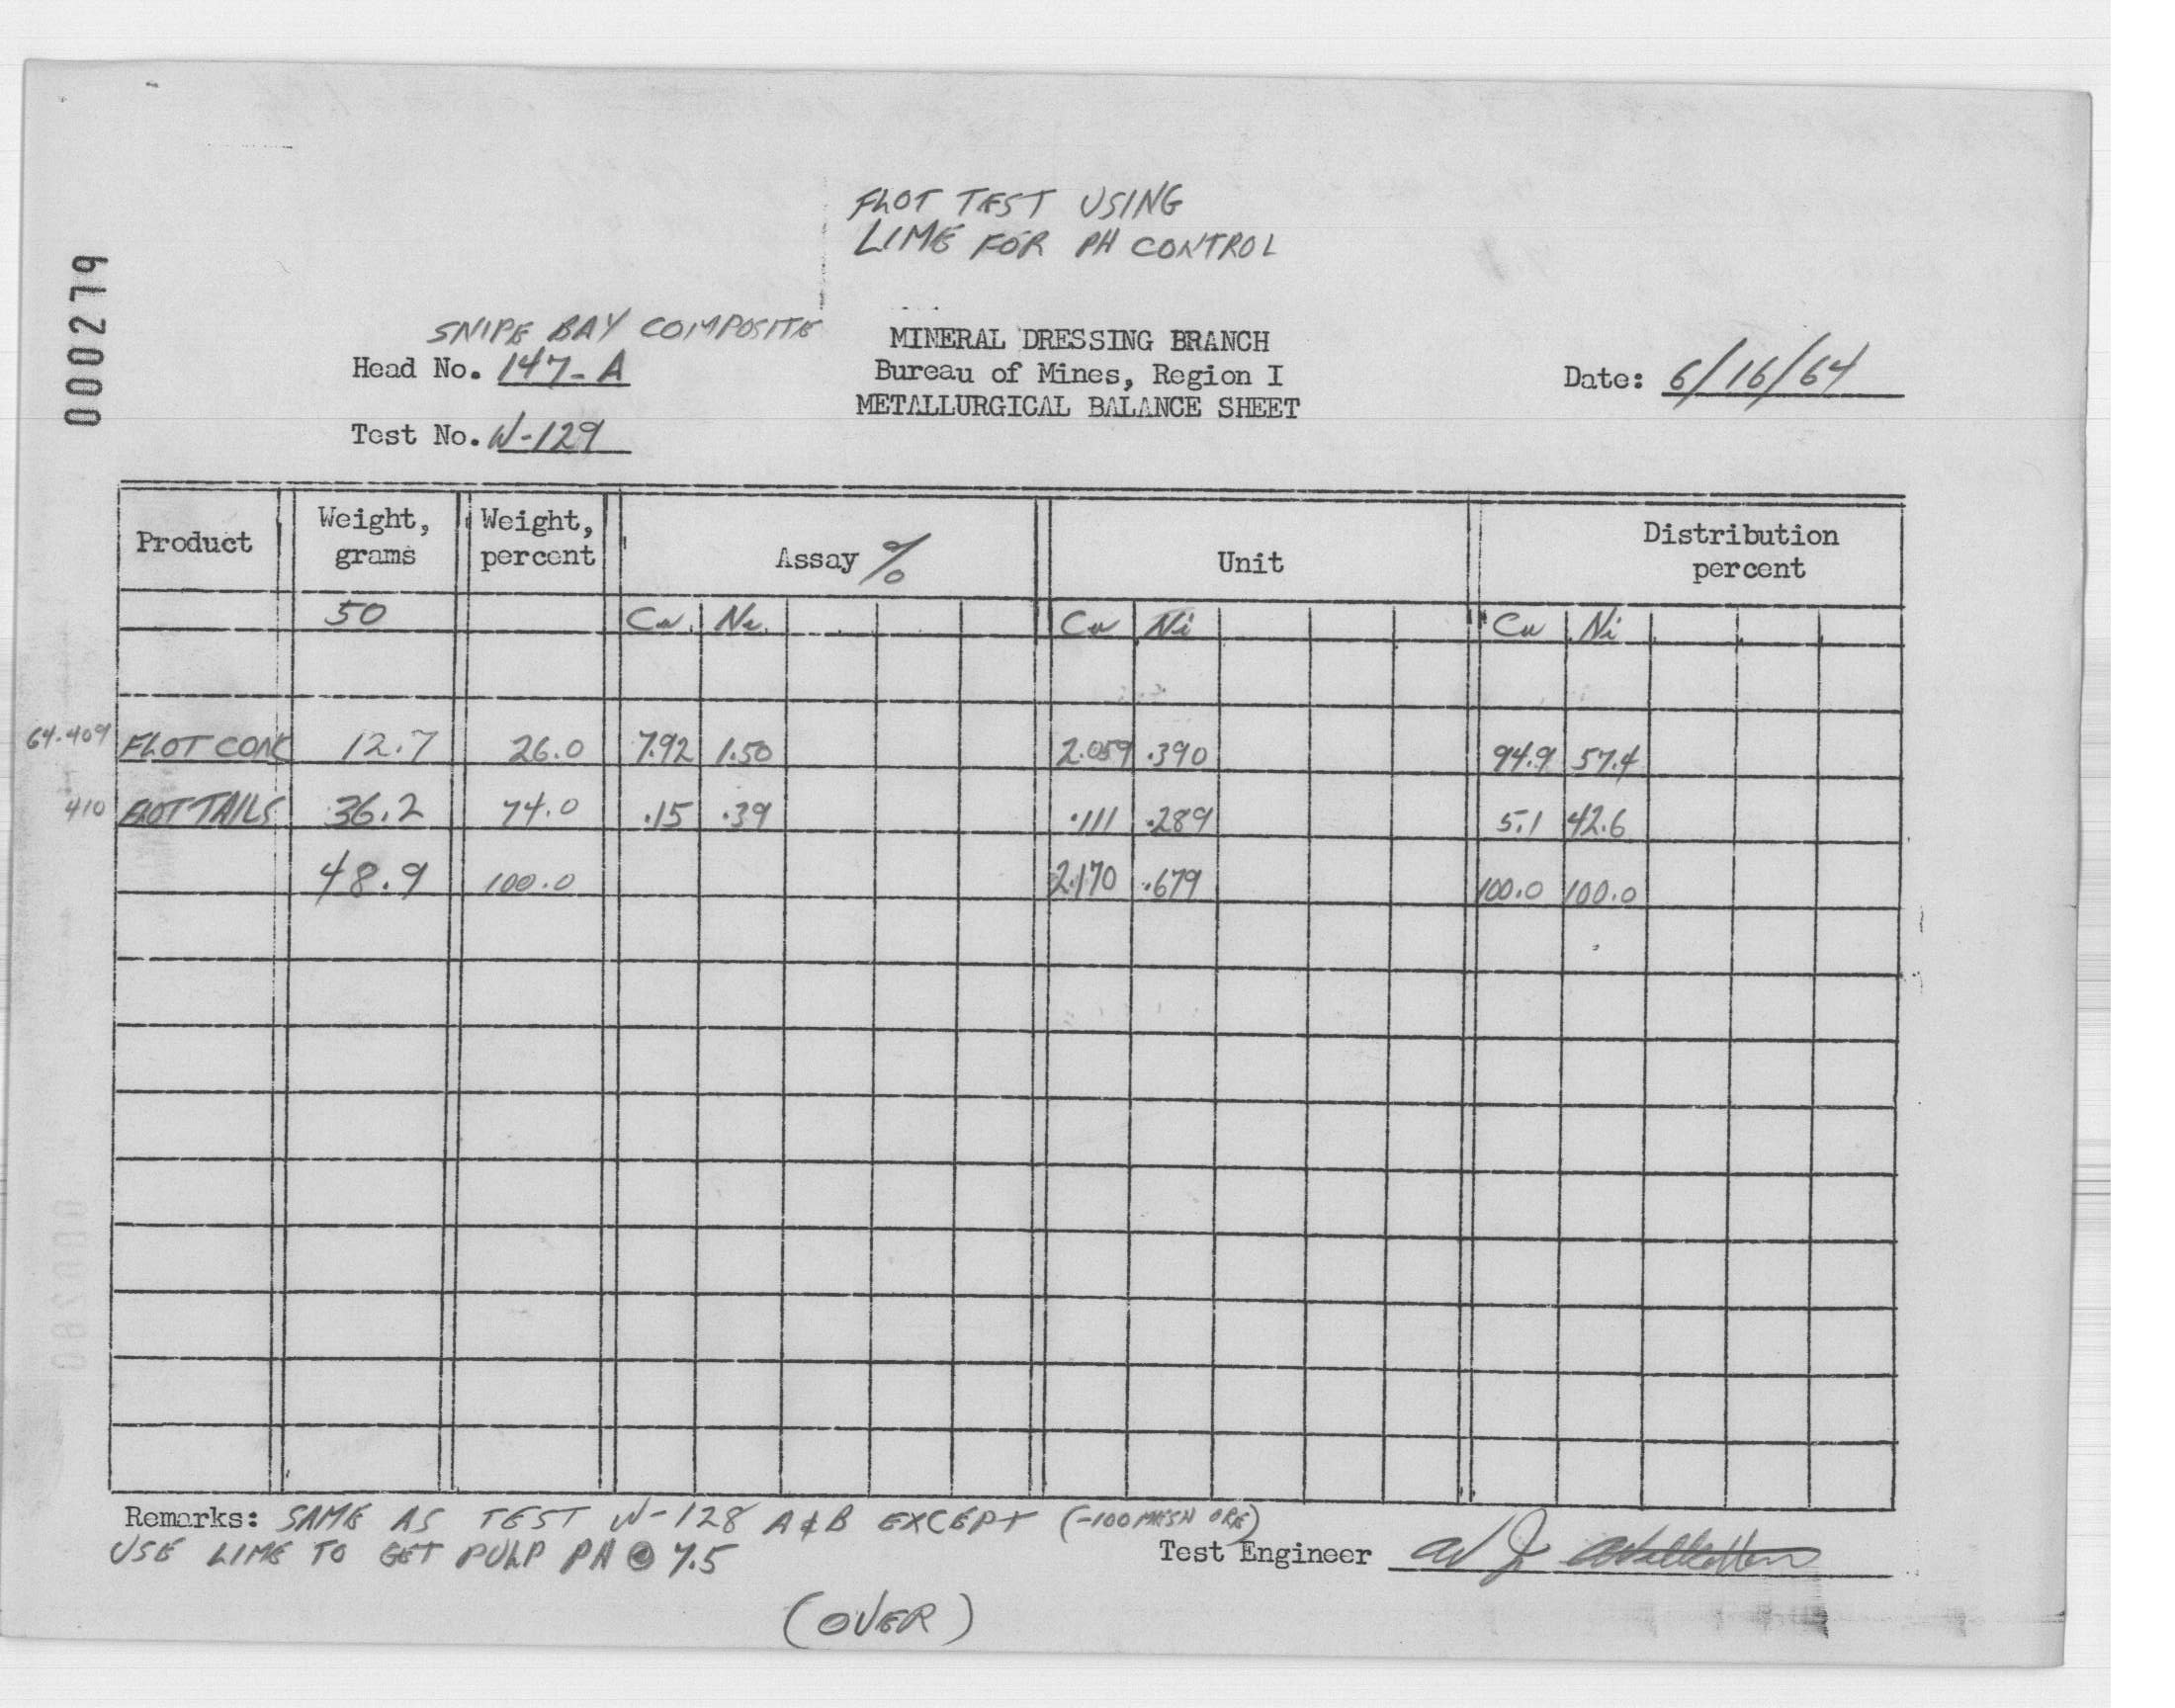 000279
FLOT TEST USING
LIME FOR PH CONTROL
SNIPE BAY COMPOSITE
Head No. 147-A
Test No. W-129
MINERAL DRESSING BRANCH
Bureau of Mines, Region I
METALLURGICAL BALANCE SHEET
Date: 6/16/64
Product Weight, grams Weight, percent Assay % Unit Distribution percent
50 Cu Ni Cu Ni Cu Ni
64-409 FLOT CONC 12.7 26.0 7.92 1.50 2.059 .390 94.9 57.4
410 FLOT TAILS 36.2 74.0 .15 .39 .111 .289 5.1 42.6
48.9 100.0 2.170 .679 100.0 100.0
Remarks: SAME AS TEST W-128 A & B EXCEPT (-100 MESH ORE)
USE LIME TO GET PULP PH @ 7.5
Test Engineer W J
(OVER)